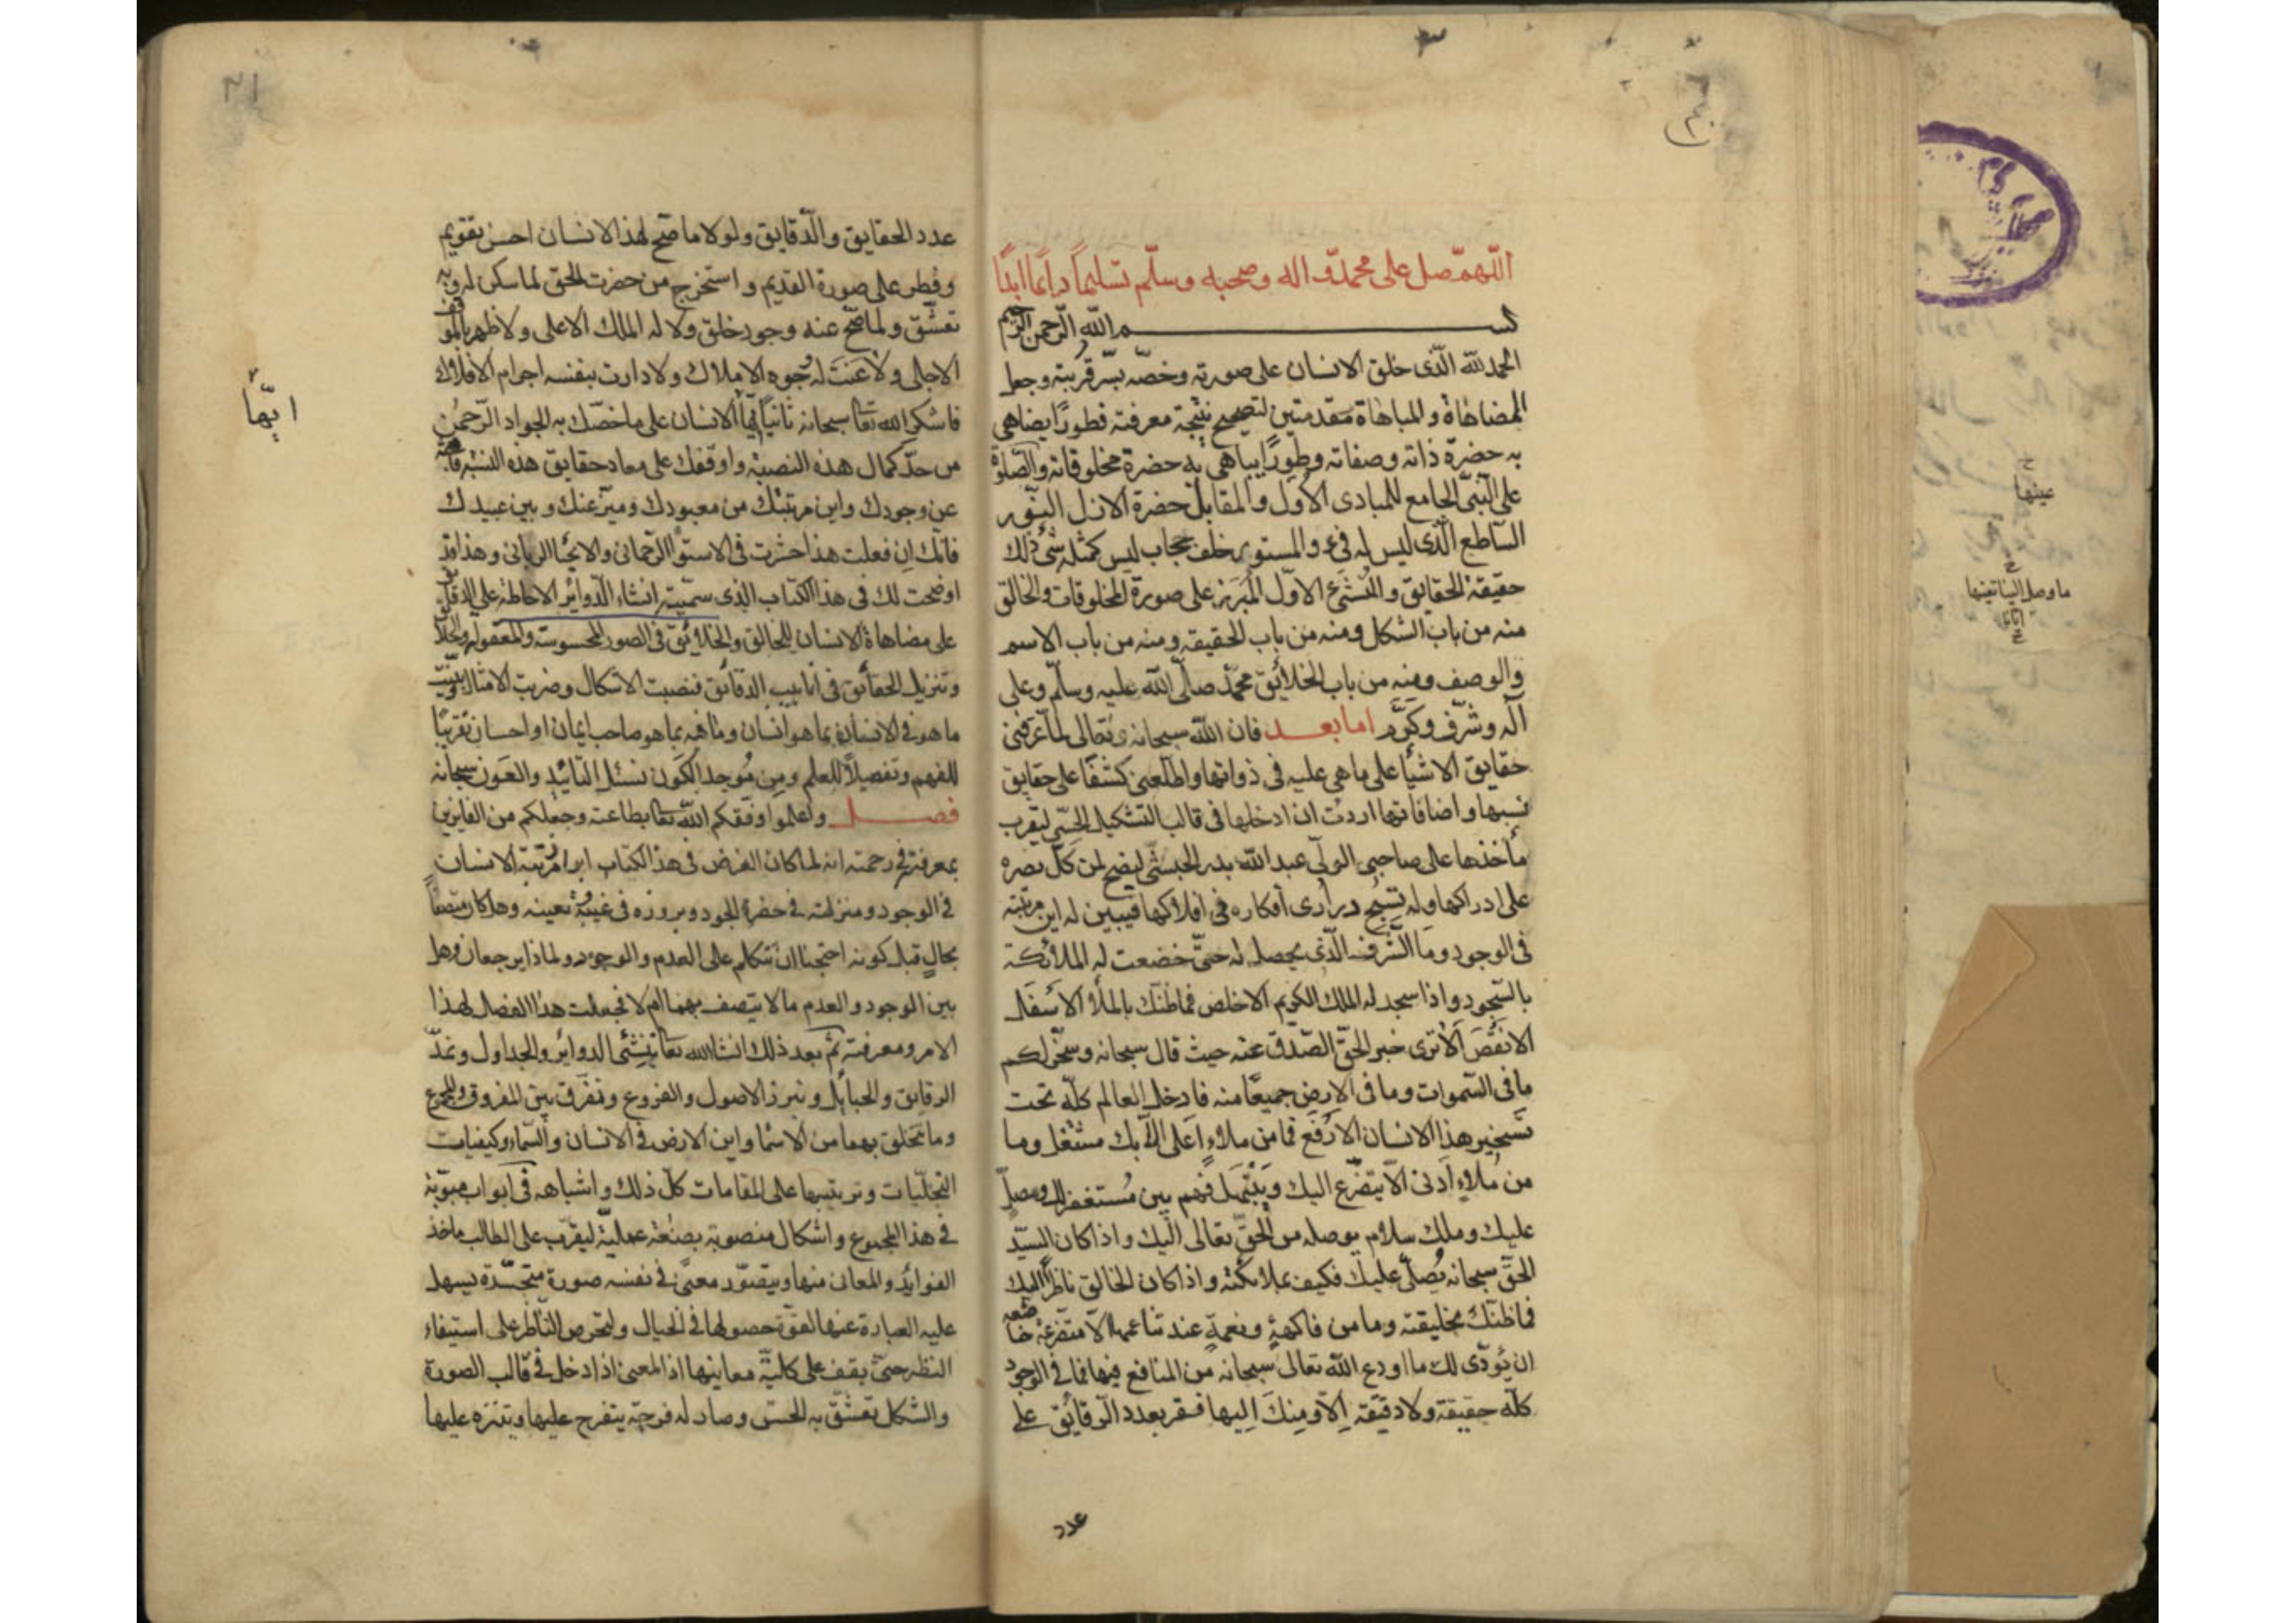 اللهم صل على محمد واله وصحبه وسلم تسليما دائما ابدا
بسم الله الرحمن الرحيم
الحمد لله الذى خلق الانسان على صورته وخصه بسر قربته وجعل
المضاهاة والمباهاة مقدمتين لتصحيح نتيجة معرفته فطورا يضاهى
به حضرة ذاته وصفاته وطورا يباهى به حضرة مخلوقاته والصلوة
على النبى الجامع للمبادى الاول والمقابل حضرة الازل النور
الساطع الذى ليس له فىء والمستور خلف حجاب ليس كمثله شئ ذلك
حقيقة الحقايق والنشئ الاول المبرز على صورة المخلوقات والخالق
منه من باب الشكل ومنه من باب الحقيقه ومنه من باب الاسم
والوصف ومنه من باب الخلائق محمد صلى الله عليه وسلم وعلى
آله وشرف وكرم اما بعد فان الله سبحانه وتعالى لما عرفنى
حقايق الاشيا على ما هى عليه فى ذواتها واطلعنى كشفا على حقايق
نسبها واضافاتها اردت ان ادخلها فى قالب التشكيل الحسى ليقرب
مأخذها على صاحبى الولى عبد الله بدر الحبشى ليضح لمن كل بصره
على ادراكها ولم تسبح درارى افكاره فى افلاكها فيبين له اين مرتبته
فى الوجود وما الشرف الذى يحصل له حتى خضعت له الملائكة
بالسجود واذا سجد له الملك الكريم الاخلص فما ظنك بالملأ الاسفل
الانقص الا ترى خبر الحق الصدق عنه حيث قال سبحانه وسخر لكم
ما فى السموات وما فى الارض جميعا منه فادخل العالم كله تحت
تسخير هذا الانسان الارفع فما من ملاء اعلى الا بك مشتغل وما
من ملاء ادنى الا يتضرع اليك ويبتهل فهم بين مستغفر لك ومصل
عليك وملك سلام يوصله من الحق تعالى اليك واذا كان السيد
الحق سبحانه يصلى عليك فكيف بملائكته واذا كان الخالق ناظرا اليك
فما ظنك بخليقته وما من فاكهة ونعمة عند تناعمها الا متضرعة خاضعه
ان يؤدى لك ما اودع الله تعالى سبحانه من المنافع فيها فما فى الوجود
كله حقيقة ولا دقيقة الا ومنك اليها فقر بعدد الرقائق على
عدد
عدد الحقايق والدقايق ولولا ما صح لهذا الانسان احسن تقويم
وفطر على صورة القديم واستخرج من حضرت الحق لما سكن له وبه
تعشق ولما صح عنه وجود خلق ولا له الملك الاعلى ولا ظهر بالموقف
الاجلى ولا عنت له وجوه الاملاك ولا دارت بنفسه اجرام الافلاك
فاشكر الله تعا سبحانه ثانيا ايها الانسان على ما خصك به الجواد الرحمن
من حد كمال هذه النصبة واوقفك على معاد حقايق هذه النسبة
عن وجودك واين مرتبتك من معبودك وميز عنك وبين عبيدك
فانك ان فعلت هذا حشرت فى الاستوا الرحمانى والانحا الربانى وهذا قد
اوضحت لك فى هذا الكتاب الذى سميته انشاء الدوائر الاحاطة على الدقايق
على مضاهاة الانسان للخالق والخلائق فى الصور المحسوسة والمعقوله
وتنزيل الحقائق فى انابيب الدقائق فنصبت الاشكال وضربت الامثال وبينت
ما هو فى الانسان بما هو انسان وما فيه بما هو صاحب ايمان او احسان تقريبا
للفهم وتفصيلا للعلم ومن موجد الكون نسئل التائيد والعون سبحانه
فصل واعلموا وفقكم الله تعا بطاعته وجعلكم من الفايزين
بمعرفته فى رحمته انه لما كان الغرض فى هذا الكتاب ابراز مرتبة الانسان
فى الوجود ومنزلته فى حضرة الجود وبروزه فى غيبة تعينه وهل كان متصفا
بحال قبل كونه احتجنا ان نتكلم على العدم والوجود ولماذا يرجعان وهل
بين الوجود والعدم ما لا يتصف بهما ام لا فجعلت هذا الفصل لهذا
الامر ومعرفته ثم بعد ذلك انشا الله تعا ننشئ الدوائر والجداول ونمد
الرقايق والحبايل ونبرز الاصول والفروع ونفرق بين المفروق والمجموع
وما تخلق بهما من الاسما واين الارض فى الانسان والسماء وكيفيات
التجليات وترتيبها على المقامات كل ذلك واشباهه فى ابواب مبوبة
فى هذا المجموع واشكال منصوبة بصنعة عملية ليقرب على الطالب ماخذ
الفوائد والمعانى منها ويتصور معنى فى نفسه صورة متجسدة يسهل
عليه العبارة عنها لقوة حصولها فى الخيال وليحرص الناظر على استيفاء
النظر حتى يقف على كلية معانيها اذ المعنى اذا ادخل فى قالب الصورة
والشكل تعشق به الحس وصار له فرجة يتفرج عليها ويتنزه عليها
ايها
عينها